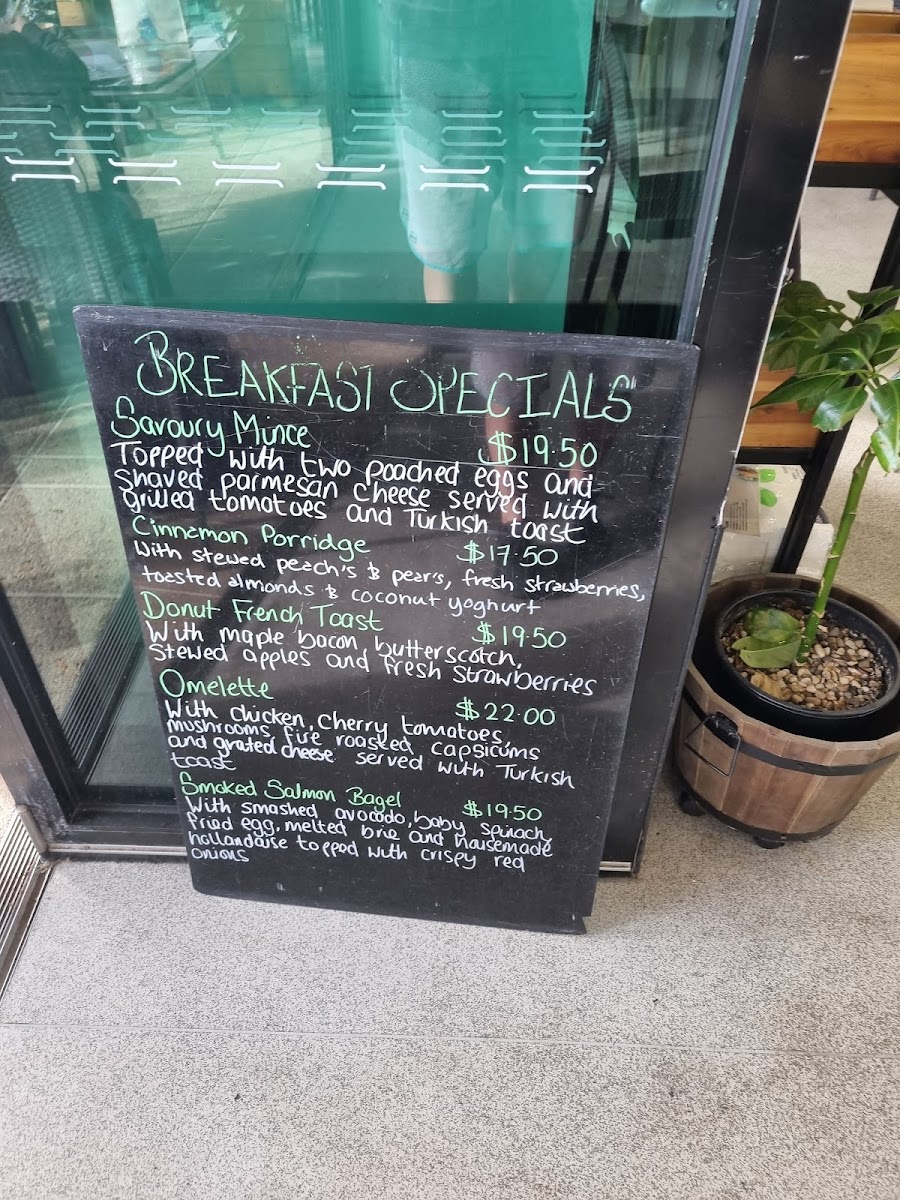 BREAKFAST SPECIALS
Savoury Mince $19.50
Topped with two poached eggs and
Shaved parmesan cheese served with
grilled tomatoes and Turkish toast
Cinnamon Porridge $17.50
With stewed peach's & pear's, fresh strawberries,
toasted almonds & coconut yoghurt
Donut French Toast $19.50
With maple bacon, butterscotch,
Stewed apples and fresh strawberries
Omelette $22.00
With chicken, cherry tomatoes,
mushrooms, fire roasted capsicums
and grated cheese served with Turkish
toast
Smoked Salmon Bagel $19.50
With smashed avocado, baby spinach,
fried egg, melted brie and housemade
hollandaise topped with crispy red
onions